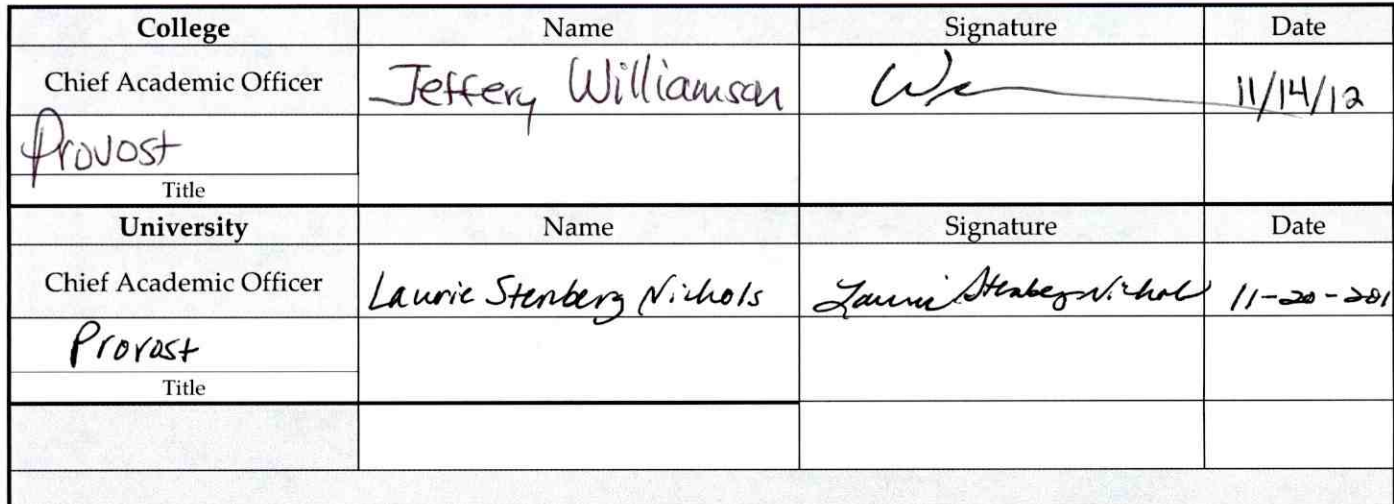 College Name Signature Date
Chief Academic Officer Jeffery Williamson 11/14/12
Provost
Title
University Name Signature Date
Chief Academic Officer Laurie Stenberg Nichols Laurie Stenberg Nichols 11-20-201
Provost
Title